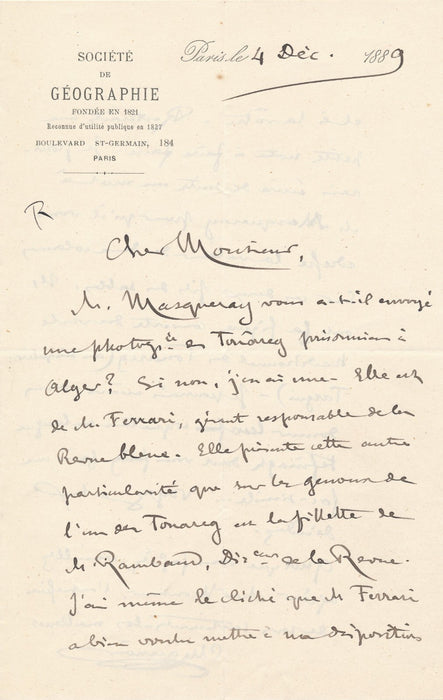 SOCIÉTÉ
DE
GÉOGRAPHIE
FONDÉE EN 1821
Reconnue d'utilité publique en 1827
BOULEVARD ST-GERMAIN, 184
PARIS
Paris, le 4 Déc. 1889
R
Cher Monsieur,
M. Masqueray vous a-t-il envoyé
une photogie des Touâreg prisonniers à
Alger? Si non, j'en ai une. Elle est
de M. Ferrari, gérant responsable de la
Revue bleue. Elle présente cette autre
particularité que sur les genoux de
l'un des Touareg est la fillette de
M. Rambaud, Direur de la Revue.
J'ai même le cliché que M. Ferrari
a bien voulu mettre à ma disposition